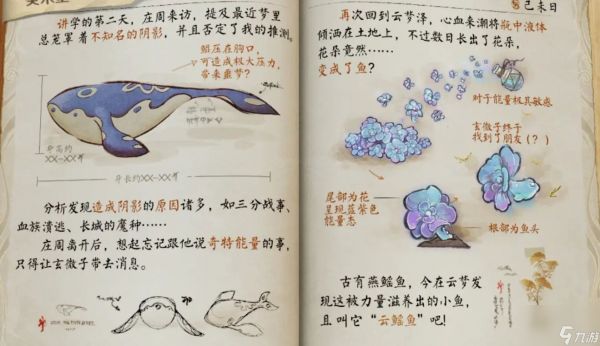 讲学的第二天，在周来访，提及最近梦里
总笼罩着不知名的阴影，并且否定了我的推测。
鲲压在胸口，
可造成极大压力，
带来噩梦？
身高约
XX-XX
身长约XX-XX
分析发现造成阴影的原因诸多，如三分战事、
血族溃逃、长城的魔种……
在周离开后，想起忘记跟他说奇特能量的事，
只得让玄微子带去消息。
己未日
再次回到云梦泽，心血来潮将瓶中液体
倾洒在土地上，不过数日长出了花朵，
花朵竟然……
变成了鱼？
对于能量极其敏感
玄微子终于
找到了朋友（？）
尾部为花
呈现蓝紫色
能量态
根部为鱼头
古有燕鳐鱼，今在云梦发
现这被力量滋养出的小鱼，
且叫它“云鳐鱼”吧！
九游